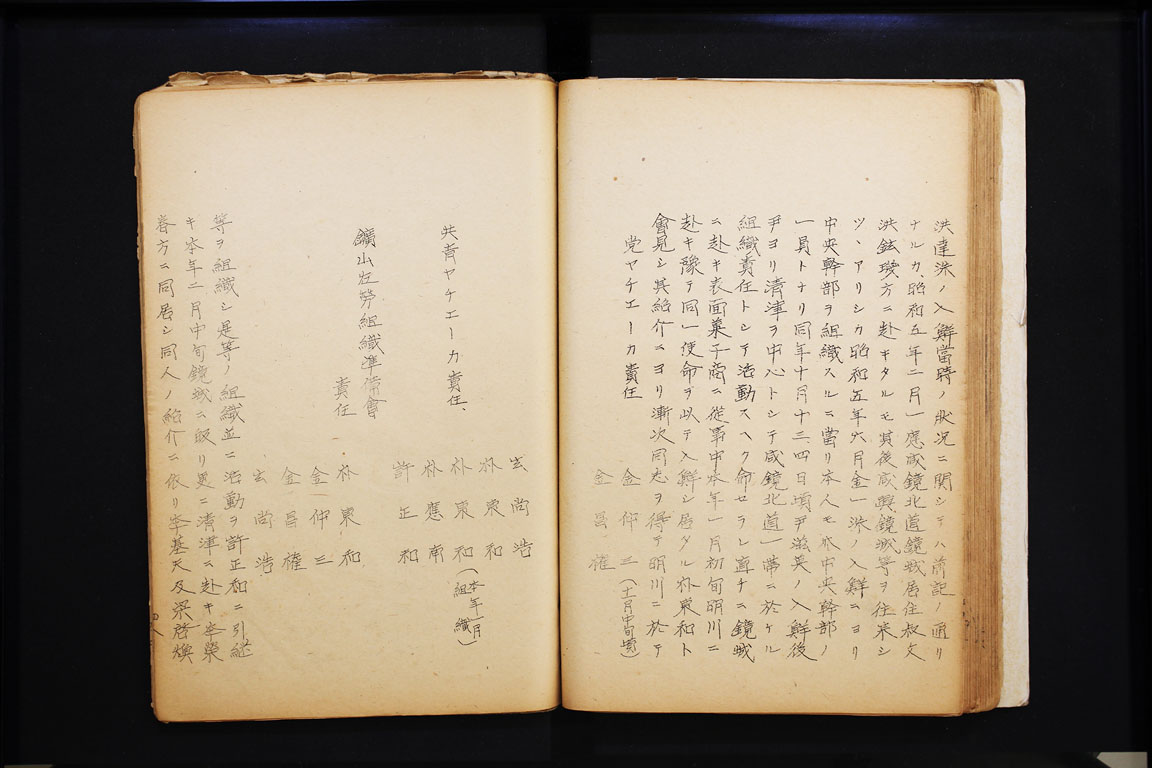 洪達洙ノ入鮮當時ノ狀況ニ関シテハ前記ノ通リ
ナルカ、昭和五年二月一應咸鏡北道鏡城居住叔父
洪鉉琰方ニ赴キタルモ其後咸興鏡城等ヲ往来シ
ツヽアリシカ昭和五年六月金一洙ノ入鮮ニヨリ
中央幹部ヲ組織スルニ當リ本人モ亦中央幹部ノ
一員トナリ同年十月十三四日頃尹滋英ノ入鮮後
尹ヨリ清津ヲ中心トシテ咸鏡北道一帯ニ於ケル
組織責任トシテ活動スヘク命セラレ直チニ鏡城
ニ赴キ表面菓子商ニ從事中本年一月初旬明川ニ
赴キ豫テ同一使命ヲ以テ入鮮シ居タル朴東和ト
會見シ其紹介ニヨリ漸次同志ヲ得テ明川ニ於テ
党ヤチエーカ責任
金仲三(十一月中旬頃)
金昌権
玄尚浩
朴東和
共青ヤチエーカ責任、
朴東和(本年一月組織)
朴應南
許正和
鑛山左勞組織準備會
責任
朴東和
金仲三
金昌権
玄尚浩
等ヲ組織シ是等ノ組織並ニ活動ヲ許正和ニ引継
キ本年二月中旬鏡城ニ皈リ更ニ清津ニ赴キ李榮
春方ニ同居シ同人ノ紹介ニ依リ李基天及梁啓煥